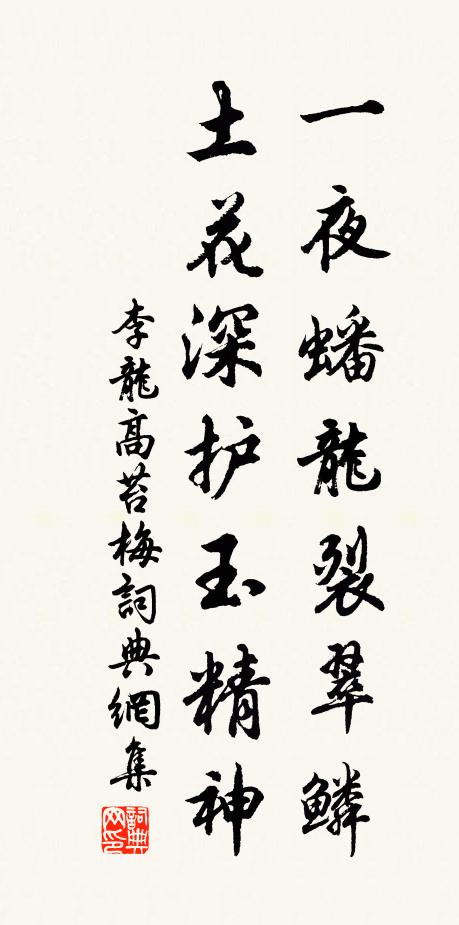 一夜蟠龍裂翠鳞
土花深护玉精神
李龍高苔梅詞典網集
詞典网印